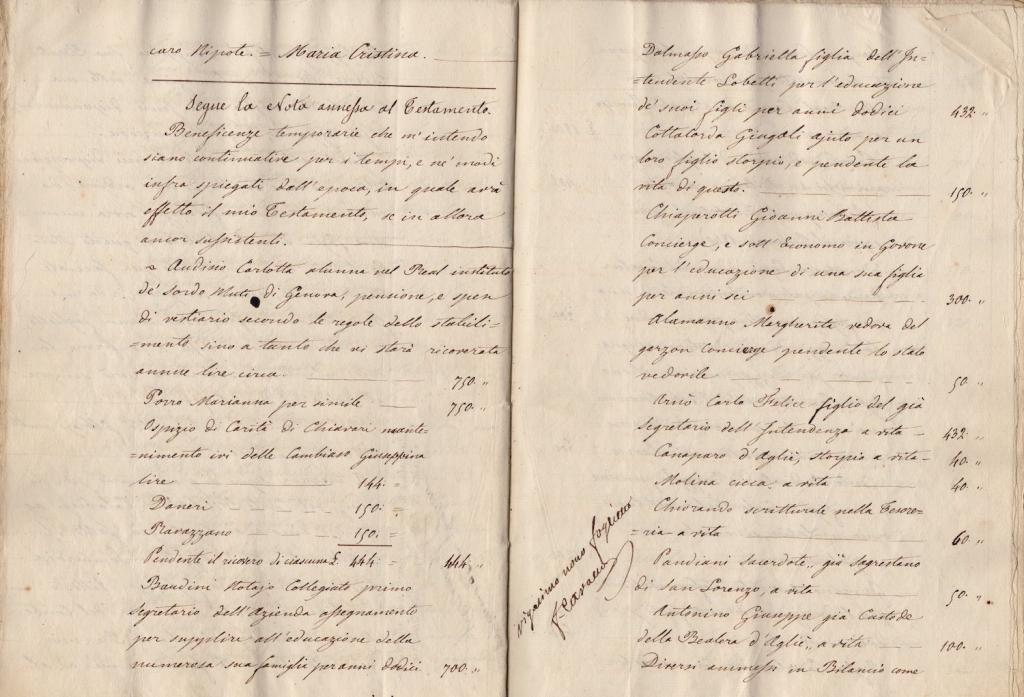 caro Nipote. = Maria Cristina.
Segue la Nota annessa al Testamento.
Beneficenze temporarie che m'intendo
siano continuative per i tempi, e ne' modi
infra spiegati dall'epoca, in quale avrà
effetto il mio Testamento, se in allora
ancor sussistenti.
Audino Carlotta alunna nel Real instituto
de' Sordo Muti di Genova, pensione, e spen
di vestiario secondo le regole dello stabili=
=mento sino a tanto che vi starà ricoverata
annue lire circa. 750. "
Porro Marianna per simile 750. "
Ospizio di Carità di Chiavari mante=
=nimento ivi delle Cambiaso Giuseppina
lire 144. =
Daneri 150. =
Ravazzano 150. =
Pendente il ricovero di ciascuna £. 444. = 444. "
Baudini Notajo Collegiato primo
segretario dell'Azienda assegnamento
per supplire all'educazione della
numerosa sua famiglia per anni dodici 700. "
vigesimo nono foglietto
Dalmasso Gabriella figlia dell'In=
=tendente Lobetti per l'educazione
de' suoi figli per anni dodici 432. "
Cottalorda Giugali ajuto per un
loro figlio storpio, e pendente la
vita di questo. 150. "
Chiaperotti Giovanni Battista
Concierge, e sott'Economo in Govone
per l'educazione di una sua figlia
per anni sei 300. "
Alamanno Margherita vedova del
garzon Concierge pendente lo stato
vedovile 50. "
Arnò Carlo Felice figlio del già
segretario dell'Intendenza a vita 432. "
Canaparo d'Agliè, storpio a vita 40. "
Molina cieca a vita 40. "
Chiorando scritturale nella Tesore=
=ria a vita 60. "
Pandiani Sacerdote, già sagrestano
di San Lorenzo, a vita 50. "
Antonino Giuseppe già Custode
della Bealera d'Agliè, a vita 100. "
Diversi ammessi in Bilancio come